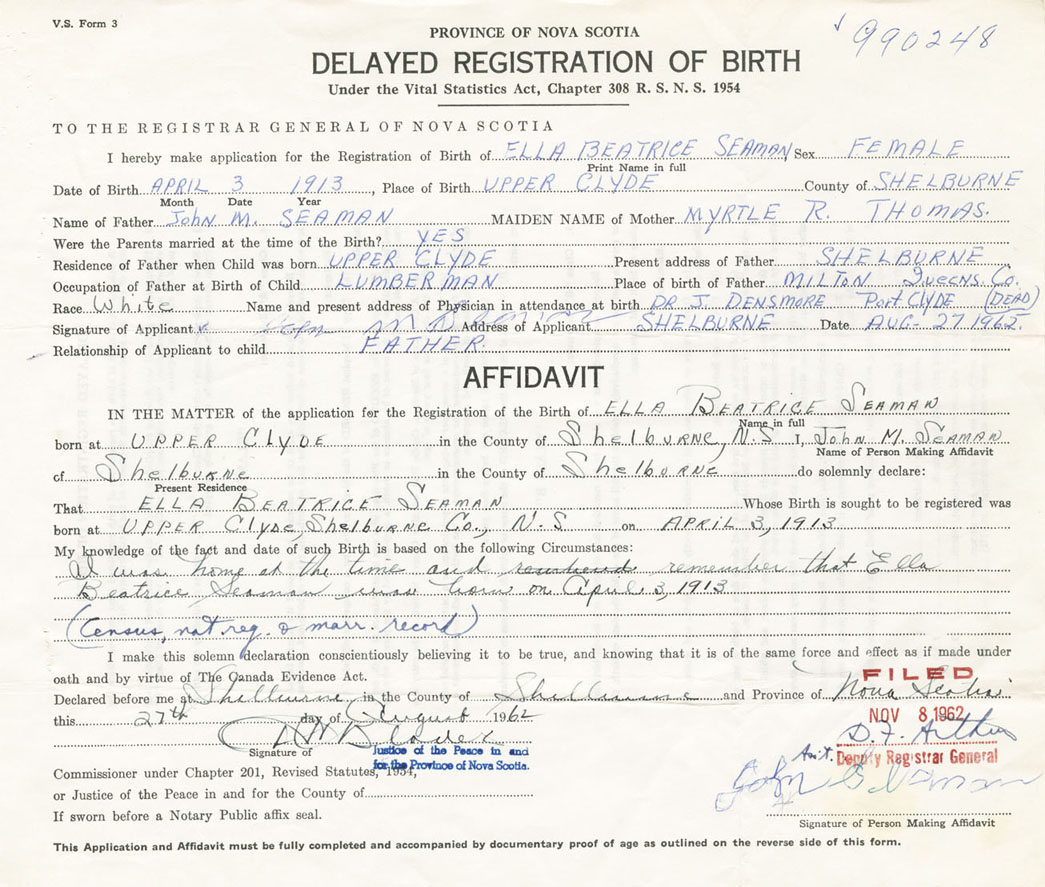 V.S. Form 3
990248
PROVINCE OF NOVA SCOTIA
DELAYED REGISTRATION OF BIRTH
Under the Vital Statistics Act, Chapter 308 R. S. N. S. 1954
TO THE REGISTRAR GENERAL OF NOVA SCOTIA
I hereby make application for the Registration of Birth of ELLA BEATRICE SEAMAN Sex FEMALE
Print Name in full
Date of Birth APRIL 3 1913, Place of Birth UPPER CLYDE County of SHELBURNE
Month Date Year
Name of Father John M. SEAMAN MAIDEN NAME of Mother MYRTLE R. THOMAS.
Were the Parents married at the time of the Birth? YES
Residence of Father when Child was born UPPER CLYDE Present address of Father SHELBURNE
Occupation of Father at Birth of Child LUMBERMAN Place of birth of Father MILTON Queens. Co.
Race White Name and present address of Physician in attendance at birth DR J. DENSMORE Port Clyde (DEAD)
Signature of Applicant x John M Address of Applicant SHELBURNE Date AUG-27 1962.
Relationship of Applicant to child FATHER.
AFFIDAVIT
IN THE MATTER of the application for the Registration of the Birth of ELLA BEATRICE SEAMAN
Name in full
born at UPPER Clyde in the County of Shelburne, N.S I, John M. SEAMAN
Name of Person Making Affidavit
of Shelburne in the County of Shelburne do solemnly declare:
Present Residence
That ELLA BEATRICE SEAMAN Whose Birth is sought to be registered was
born at UPPER Clyde, Shelburne Co., N.S on APRIL 3, 1913
My knowledge of the fact and date of such Birth is based on the following Circumstances:
I was home at the time and remember that Ella
Beatrice Seaman was born on April 3, 1913
(Census, nat. reg. & marr. record)
I make this solemn declaration conscientiously believing it to be true, and knowing that it is of the same force and effect as if made under
oath and by virtue of The Canada Evidence Act.
FILED
Declared before me at Shelburne in the County of Shelburne and Province of Nova Scotia
this 27th day of August 1962
NOV 8 1962
Signature of
Justice of the Peace in and
for the Province of Nova Scotia.
D. F. Arthur
Asst. Deputy Registrar General
Commissioner under Chapter 201, Revised Statutes, 1954,
or Justice of the Peace in and for the County of
John Seaman
If sworn before a Notary Public affix seal.
Signature of Person Making Affidavit
This Application and Affidavit must be fully completed and accompanied by documentary proof of age as outlined on the reverse side of this form.